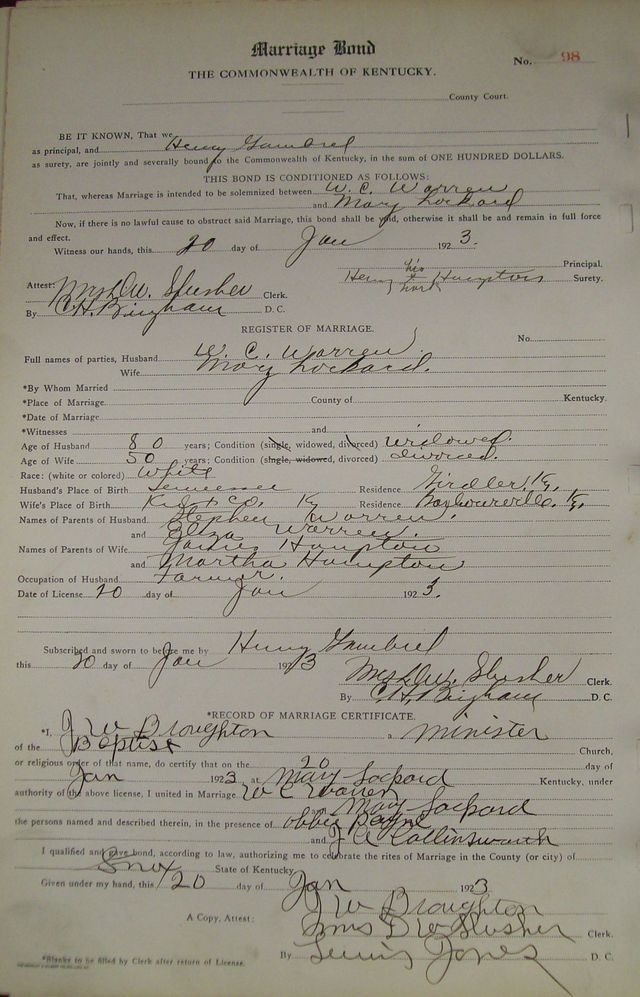 Marriage Bond
No. 98
THE COMMONWEALTH OF KENTUCKY.
County Court.
BE IT KNOWN, That we
as principal, and Henry Gambrel
as surety, are jointly and severally bound to the Commonwealth of Kentucky, in the sum of ONE HUNDRED DOLLARS.
THIS BOND IS CONDITIONED AS FOLLOWS:
That, whereas Marriage is intended to be solemnized between W. C. Warren
and Mary Lockard
Now, if there is no lawful cause to obstruct said Marriage, this bond shall be void, otherwise it shall be and remain in full force
and effect.
Witness our hands, this 20 day of Jan 1923.
Principal.
Henry his x mark Hampton Surety.
Attest: Mrs D.W. Slusher Clerk.
By C.H. Bingham D. C.
REGISTER OF MARRIAGE.
No.
Full names of parties, Husband W. C. Warren.
Wife Mary Lockard.
*By Whom Married
*Place of Marriage County of Kentucky.
*Date of Marriage
*Witnesses and
Age of Husband 80 years; Condition (single, widowed, divorced) widowed.
Age of Wife 50 years; Condition (single, widowed, divorced) divorced.
Race: (white or colored) White
Husband's Place of Birth Tennessee Residence Girdler, Ky.
Wife's Place of Birth Knox Co. Ky Residence Barbourville, Ky.
Names of Parents of Husband Stephen Warren.
and Eliza Warren.
Names of Parents of Wife James Hampton
and Martha Hampton
Occupation of Husband Farmer.
Date of License 20 day of Jan 1923.
Subscribed and sworn to before me by Henry Gambrel
this 20 day of Jan 1923
Mrs D.W. Slusher Clerk.
By C.H. Bingham D. C.
*RECORD OF MARRIAGE CERTIFICATE.
*I, J W Broughton a minister
of the Baptist Church,
or religious order of that name, do certify that on the 20 day of
Jan 1923 at Mary Lockard Kentucky, under
authority of the above license, I united in Marriage W C Warren
and Mary Lockard
the persons named and described therein, in the presence of Payne
and J A Collinsworth
I qualified and gave bond, according to law, authorizing me to celebrate the rites of Marriage in the County (or city) of
Knox State of Kentucky
Given under my hand, this 20 day of Jan 1923
J W Broughton
A Copy, Attest: Mrs D W Slusher Clerk.
By Lewis Jones D. C.
*Blanks to be filled by Clerk after return of License.